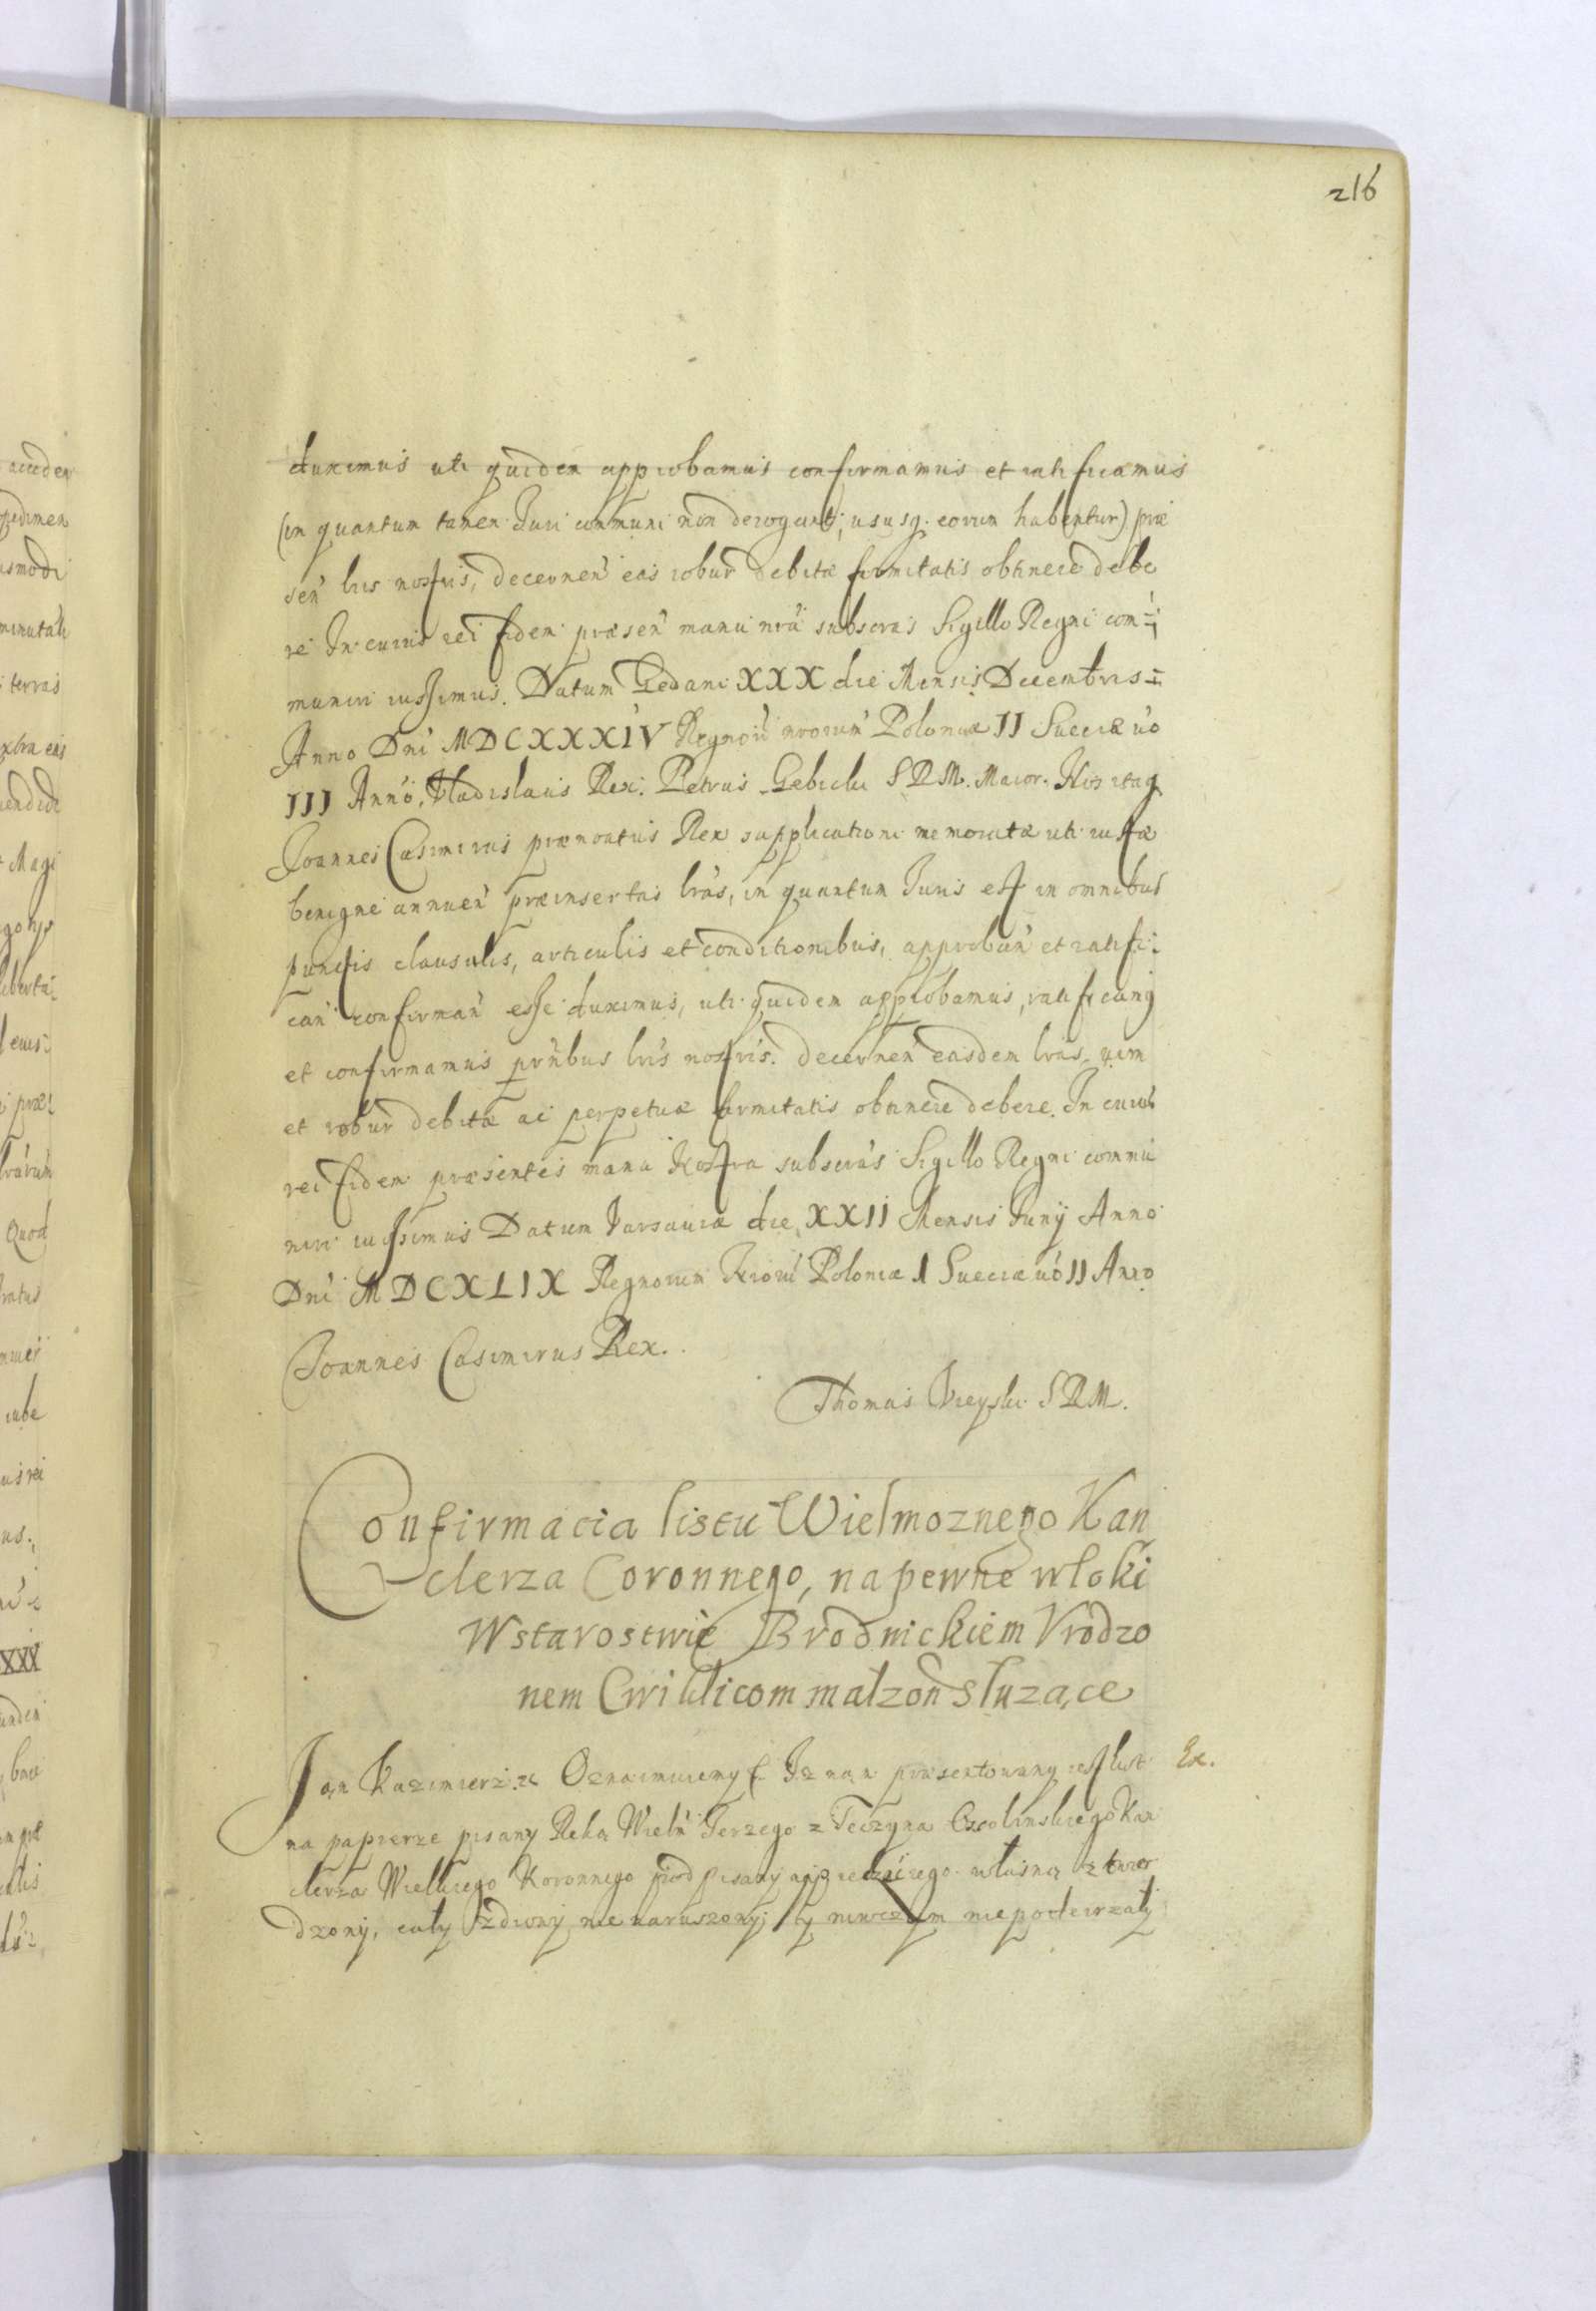 216
duximus uti quidem approbamus confirmamus et ratificamus
(in quantum tamen Juri communi non derogant, ususq. eorum habentur) præ
sen̄ lris nostris, decernen̄ eas robur debitæ firmitatis obtinere debe
re In cuius rei fidem præsen̄ manu nrā subscras Sigillo Regni com-
muniri iussimus. Datum Gedani XXX die Mensis Decembris
Anno Dni MDCXXXIV Regnorū nrorum Poloniæ II Sueciæ uō
III Anno, Vladislaus Rex. Petrus Gebicki S R M. Maior. Nos itaq
Joannes Casimirus prænoatus Rex supplicationi memoratæ uti iustæ
benigne annuen̄ præinsertas lras, in quantum Juris est in omnibus
punctis clausulis, articulis et conditionibus, approban̄ et ratifi-
can̄ confirman̄ esse duximus, uti quidem approbamus, ratificamq
et confirmamus prn̄bus lris nostris. decernen̄ easdem lras uim
et robur debitæ ac perpetuæ firmitatis obtinere debere. In cuius
rei fidem præsentes manu Nostra subscras Sigillo Regni commu
niri iussimus Datum Varsauiæ die XXII Mensis Junij Anno
Dni MDCXLIX Regnorum Nrorū Poloniæ I Sueciæ uō II Anno
Joannes Casimirus Rex.
Thomas Vieyski S R M.
Confirmacia listu Wielmoznego Kan
clerza Coronnego, na pewne włoki
W starostwie Brodnickiem Vrodzo
nem małzon słuzące
Jan Kazimierz. Oznaimuiemy Iz nam præsentowany iest list
Ex.
na papierze pisany Ręką Wieln̄ Jerzego z Teczyna Ossolinskiego Kan
clerza Wielkiego Koronnego podpisany własną ztwier
dzony, cały zdrowy nie naruszony, y niwczym niepodeirzały